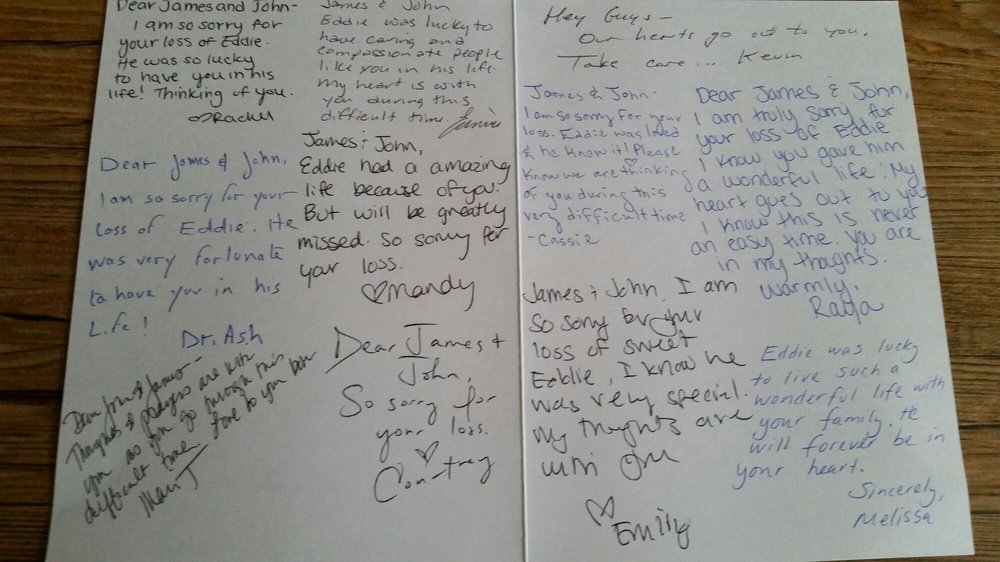 Dear James and John-
I am so sorry for
your loss of Eddie.
He was so lucky
to have you in his
life! Thinking of you.
Rachel
James & John
Eddie was lucky to
have caring and
compassionate people
like you in his life.
My heart is with
you during this
difficult time.
Dear James & John,
I am so sorry for your
loss of Eddie. He
was very fortunate
to have you in his
Life!
Dr. Ash
James & John,
Eddie had a amazing
life because of you.
But will be greatly
missed. So sorry for
your loss.
♡Mandy
Dear John & James-
Thoughts & prayers are with
you as you go through this
difficult time love to you both
Mari J
Dear James &
John,
So sorry for
your loss.
♡
Courtney
Hey Guys-
Our hearts go out to you.
Take care... Kevin
James & John-
I am so sorry for your
loss. Eddie was loved
& he know it! Please
know we are thinking
of you during this
very difficult time
-Cassie
Dear James & John,
I am truly sorry for
your loss of Eddie.
I know you gave him
a wonderful life. My
heart goes out to you
I know this is never
an easy time. You are
in my thoghts.
Warmly,
James & John, I am
so sorry for your
loss of sweet
Eddie, I know he
was very special.
My thoughts are
with you
♡
Emily
Eddie was lucky
to live such a
wonderful life with
your family. He
will forever be in
your heart.
Sincerely,
Melissa